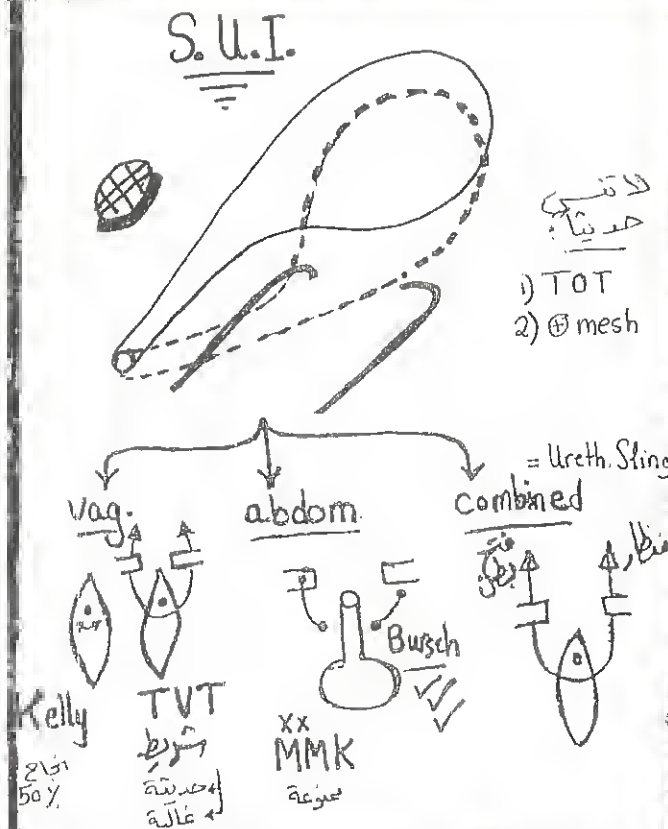 S.U.I.
لا تنسي
حديثاً:
1) TOT
2) ⊕ mesh
= Ureth. Sling
vag.
abdom.
combined
فتح بطن
منظار
Bursch
Kelly
نجاح
50%
TVT
شريط
حديثة
غالية
xx
MMK
ممنوعة